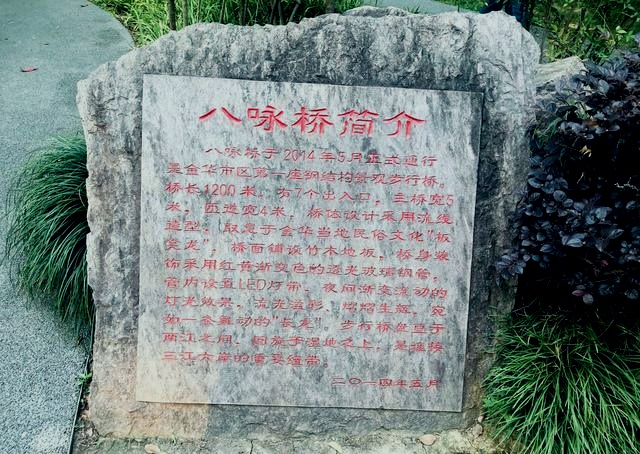 八咏桥简介
八咏桥于2014年5月正式通行
是金华市区第一座钢结构景观步行桥。
桥长1200米，有7个出入口，主桥宽5
米，匝道宽4米，桥体设计采用流线
造型，取意于金华当地民俗文化"板
凳龙"，桥面铺设竹木地板，桥身装
饰采用红黄渐变色的透光玻璃钢管，
管内设置LED灯带，夜间渐变流动的
灯光效果，流光溢彩、熠熠生辉，宛
如一条舞动的"长龙"。步行桥盘旦于
两江之间，回旋于湿地之上，是连接
三江六岸的重要纽带。
二〇一四年五月